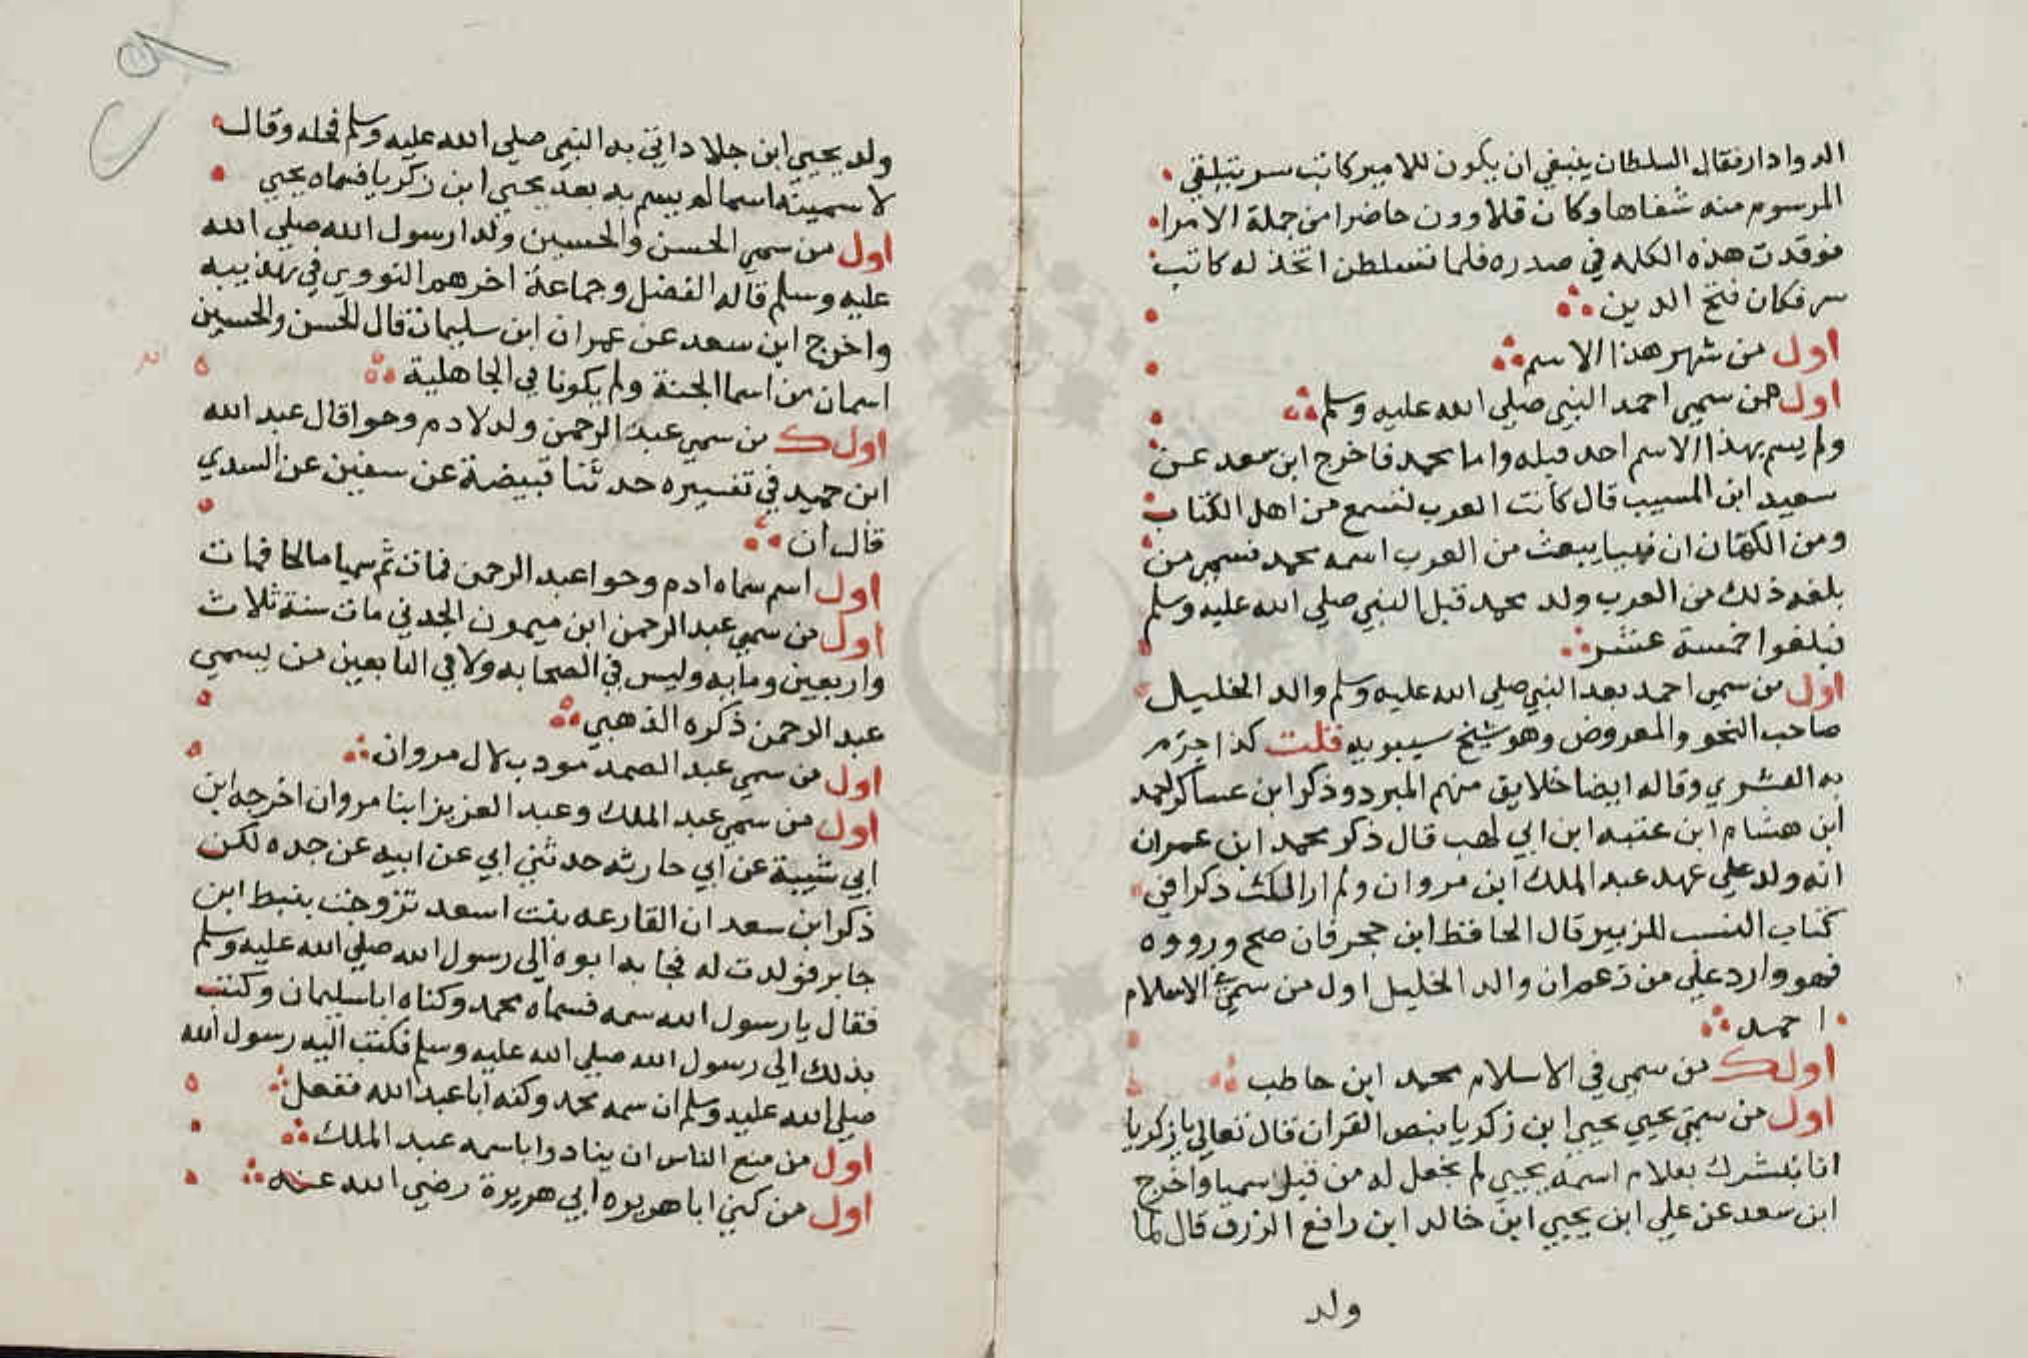 الدوادار فقال السلطان ينبغي ان يكون للامير كاتب سر يتلقي
المرسوم منه شفاها وكان قلاوون حاضرا من جملة الامرا
فوقدت هذه الكلمه في صدره فلما تسلطن اتخذ له كاتب
سر فكان فتح الدين
اول من شهر هذا الاسم
اول من سمي احمد النبي صلي الله عليه وسلم
ولم يسم بهذا الاسم احد قبله واما محمد فاخرج ابن سعد عن
سعيد ابن المسيب قال كانت العرب تسمع من اهل الكتاب
ومن الكهان ان نبيا يبعث من العرب اسمه محمد فسمي من
بلغه ذلك من العرب ولد محمد قبل النبي صلي الله عليه وسلم
فبلغوا خمسة عشر
اول من سمي احمد بعد النبي صلي الله عليه وسلم والد الخليل
صاحب النحو والعروض وهو شيخ سيبويه قلت كذا جزم
به العسكري وقاله ايضا خلايق منهم المبرد وذكر ابن عساكر احمد
ابن هشام ابن عتبه ابن ابي لهب قال ذكر محمد ابن عمران
انه ولد علي عهد عبد الملك ابن مروان ولم ار لذلك ذكرا في
كتاب النسب للزبير قال الحافظ ابن حجر فان صح وروده
فهو وارد علي من زعم ان والد الخليل اول من سمي في الاسلام
احمد
اول من سمي في الاسلام محمد ابن حاطب
اول من سمي يحيي يحيي ابن زكريا بنص القران قال تعالي يا زكريا
انا نبشرك بغلام اسمه يحيي لم نجعل له من قبل سميا واخرج
ابن سعد عن علي ابن يحيي ابن خالد ابن رافع الزرق قال لما
ولد
ولد يحيي ابن خلاد اتي به النبي صلي الله عليه وسلم فحنكه وقال
لاسمينه اسما لم يسم به بعد يحيي ابن زكريا فسماه يحيي
اول من سمي الحسن والحسين ولدا رسول الله صلي الله
عليه وسلم قاله الفضل وجماعة اخرهم النووي في تهذيبه
واخرج ابن سعد عن عمران ابن سليمان قال الحسن والحسين
اسمان من اسما الجنة ولم يكونا في الجاهلية
اول من سمي عبد الرحمن ولد لادم وحوا قال عبد الله
ابن حميد في تفسيره حدثنا قبيضة عن سفين عن السدي
قال ان
اول اسم سماه ادم وحوا عبد الرحمن فمات ثم سميا صالحا فمات
اول من سمي عبد الرحمن ابن ميمون الجدني مات سنة ثلاث
واربعين ومايه وليس في الصحابه ولا في التابعين من يسمي
عبد الرحمن ذكره الذهبي
اول من سمي عبد الصمد مودب لال مروان
اول من سمي عبد الملك وعبد العزيز ابنا مروان اخرجه ابن
ابي شيبة عن ابي حارثه حدثني ابي عن ابيه عن جده لكن
ذكر ابن سعد ان القارعه بنت اسعد تزوجت بنبط ابن
جابر فولدت له فجا به ابوه الي رسول الله صلي الله عليه وسلم
فقال يا رسول الله سمه فسماه محمد وكناه ابا سليمان وكتب
بذلك الي رسول الله صلي الله عليه وسلم فكتب اليه رسول الله
صلي الله عليه وسلم ان سمه محمد وكنه ابا عبد الله ففعل
اول من منع الناس ان ينادوا باسمه عبد الملك
اول من كني ابا هريره ابي هريرة رضي الله عنه